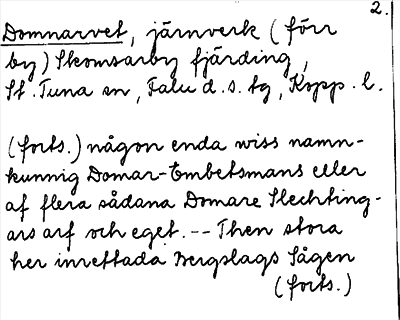 2.
Domnarvet, järnverk (förr
by) Skomsarby fjärding,
St. Tuna sn, Falu d.s. tg, Kopp. l.
(forts.) någon enda wiss namn-
kunnig Domar-Embetsmans eller
af flera sådana Domare Slechting-
ars arf och eget. -- Then stora
her inrettada Bergslags Sågen
(forts.)